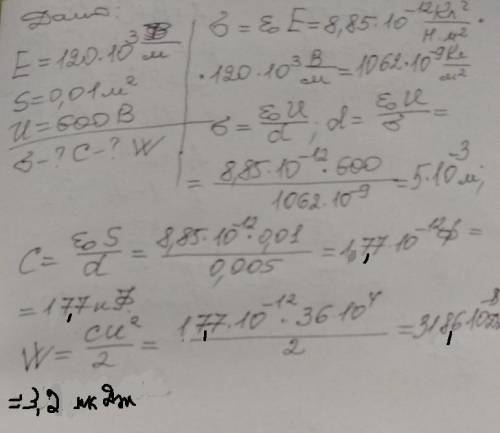 Дано:
E=120·10³ В/м
S=0,01м²
U=600В
σ-? C-? W
σ=ε₀E=8,85·10⁻¹² Кл²/Н·м² ·
·120·10³ В/м=1062·10⁻⁹ Кл/м²
σ=ε₀U/d; d=ε₀U/σ=
=8,85·10⁻¹²·600/1062·10⁻⁹=5·10⁻³м;
C=ε₀S/d=8,85·10⁻¹²·0,01/0,005=1,77·10⁻¹²Ф=
=17,7пФ
W=CU²/2=17,7·10⁻¹²·36·10⁴/2=318,6·10⁻⁸Дж
=3,2 мк Дж